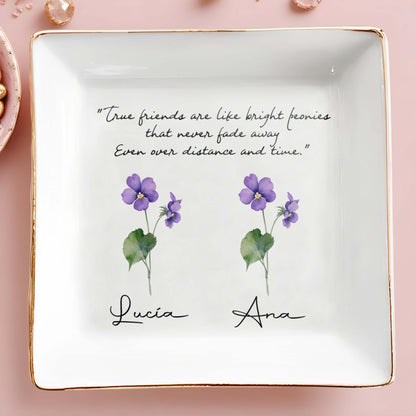 "True friends are like bright peonies
that never fade away
Even over distance and time."
Lucía Ana